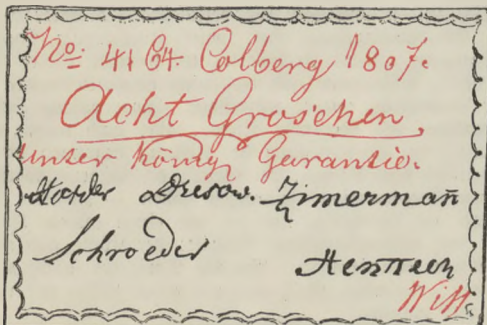 No: 4164. Colberg 1807.
Acht Groschen
unter König Garantie.
Dresow. Zimermañ
Schroeder
Henneck